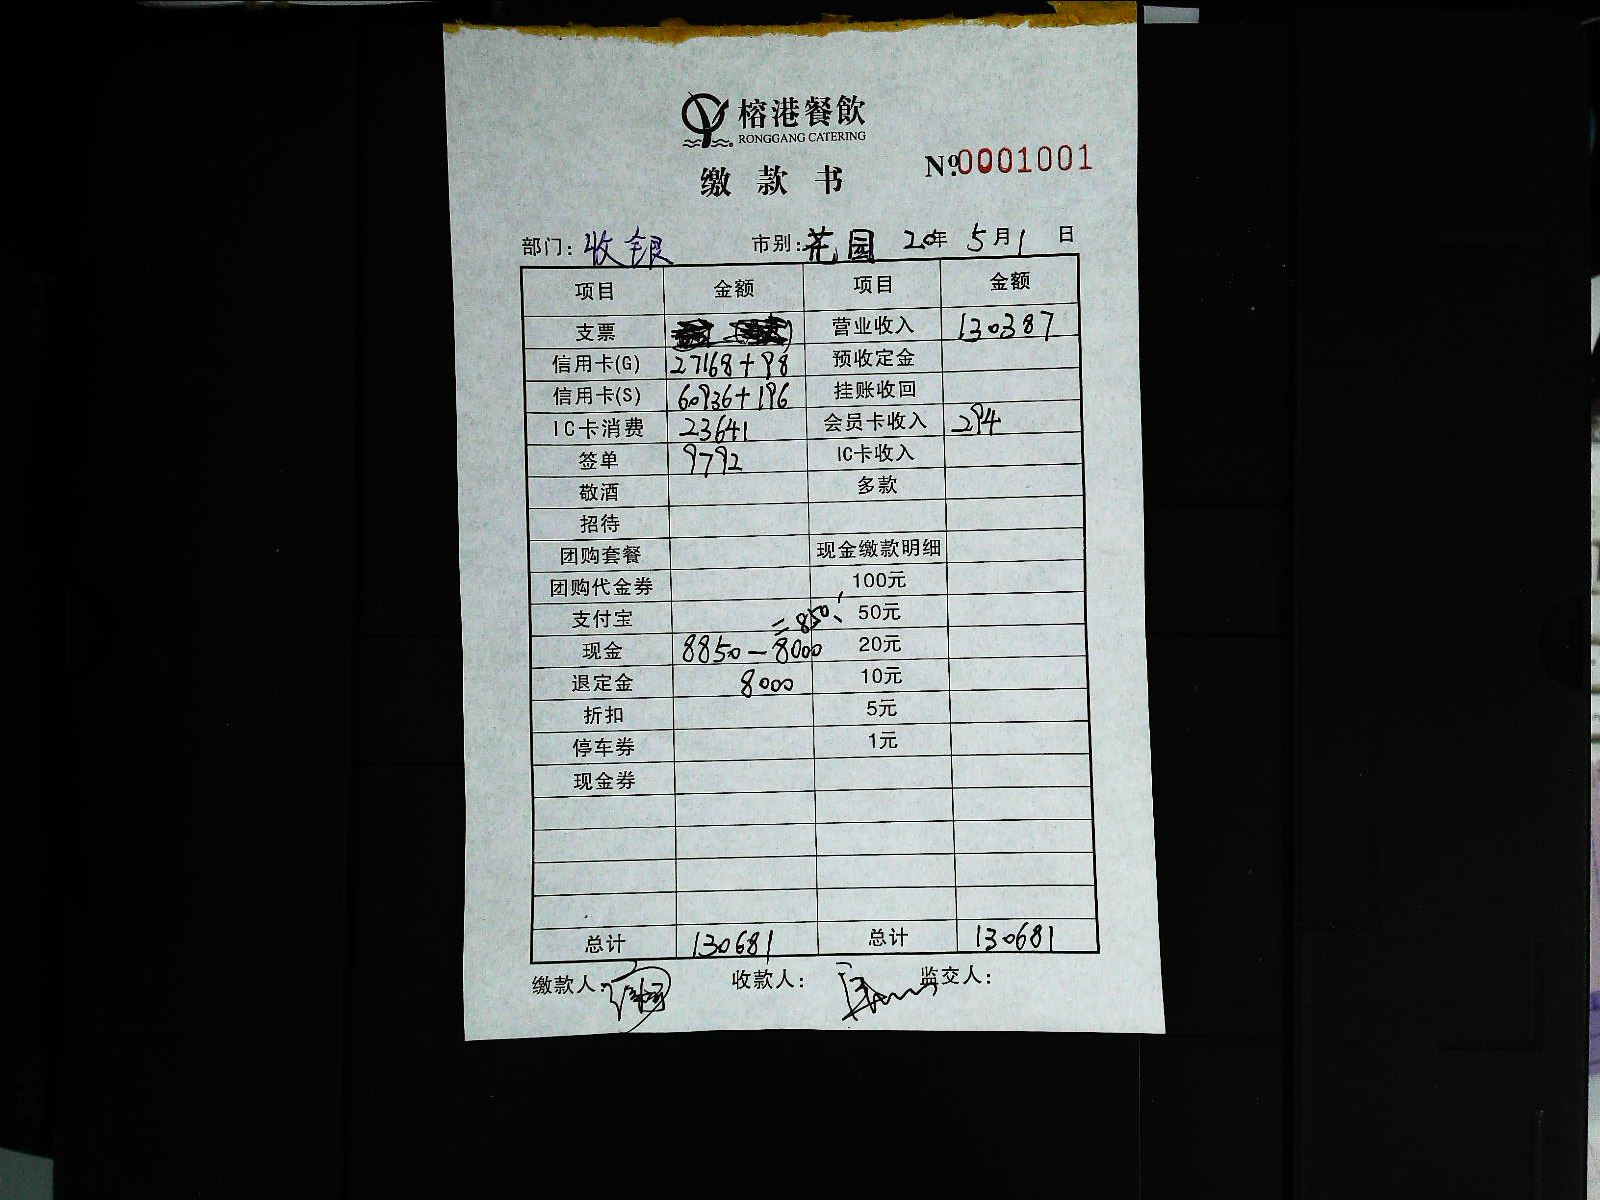 榕港餐飲
RONGGANG CATERING
缴款书
№0001001
部门：收银 市别：花园 20年5月1日
项目 金额 项目 金额
支票 营业收入 130387
信用卡(G) 27168+98 预收定金
信用卡(S) 60936+196 挂账收回
IC卡消费 23641 会员卡收入 294
签单 9792 IC卡收入
敬酒 多款
招待
团购套餐 现金缴款明细
团购代金券 100元
支付宝 =850 50元
现金 8850-8000 20元
退定金 8000 10元
折扣 5元
停车券 1元
现金券
总计 130681 总计 130681
缴款人： 收款人： 监交人：